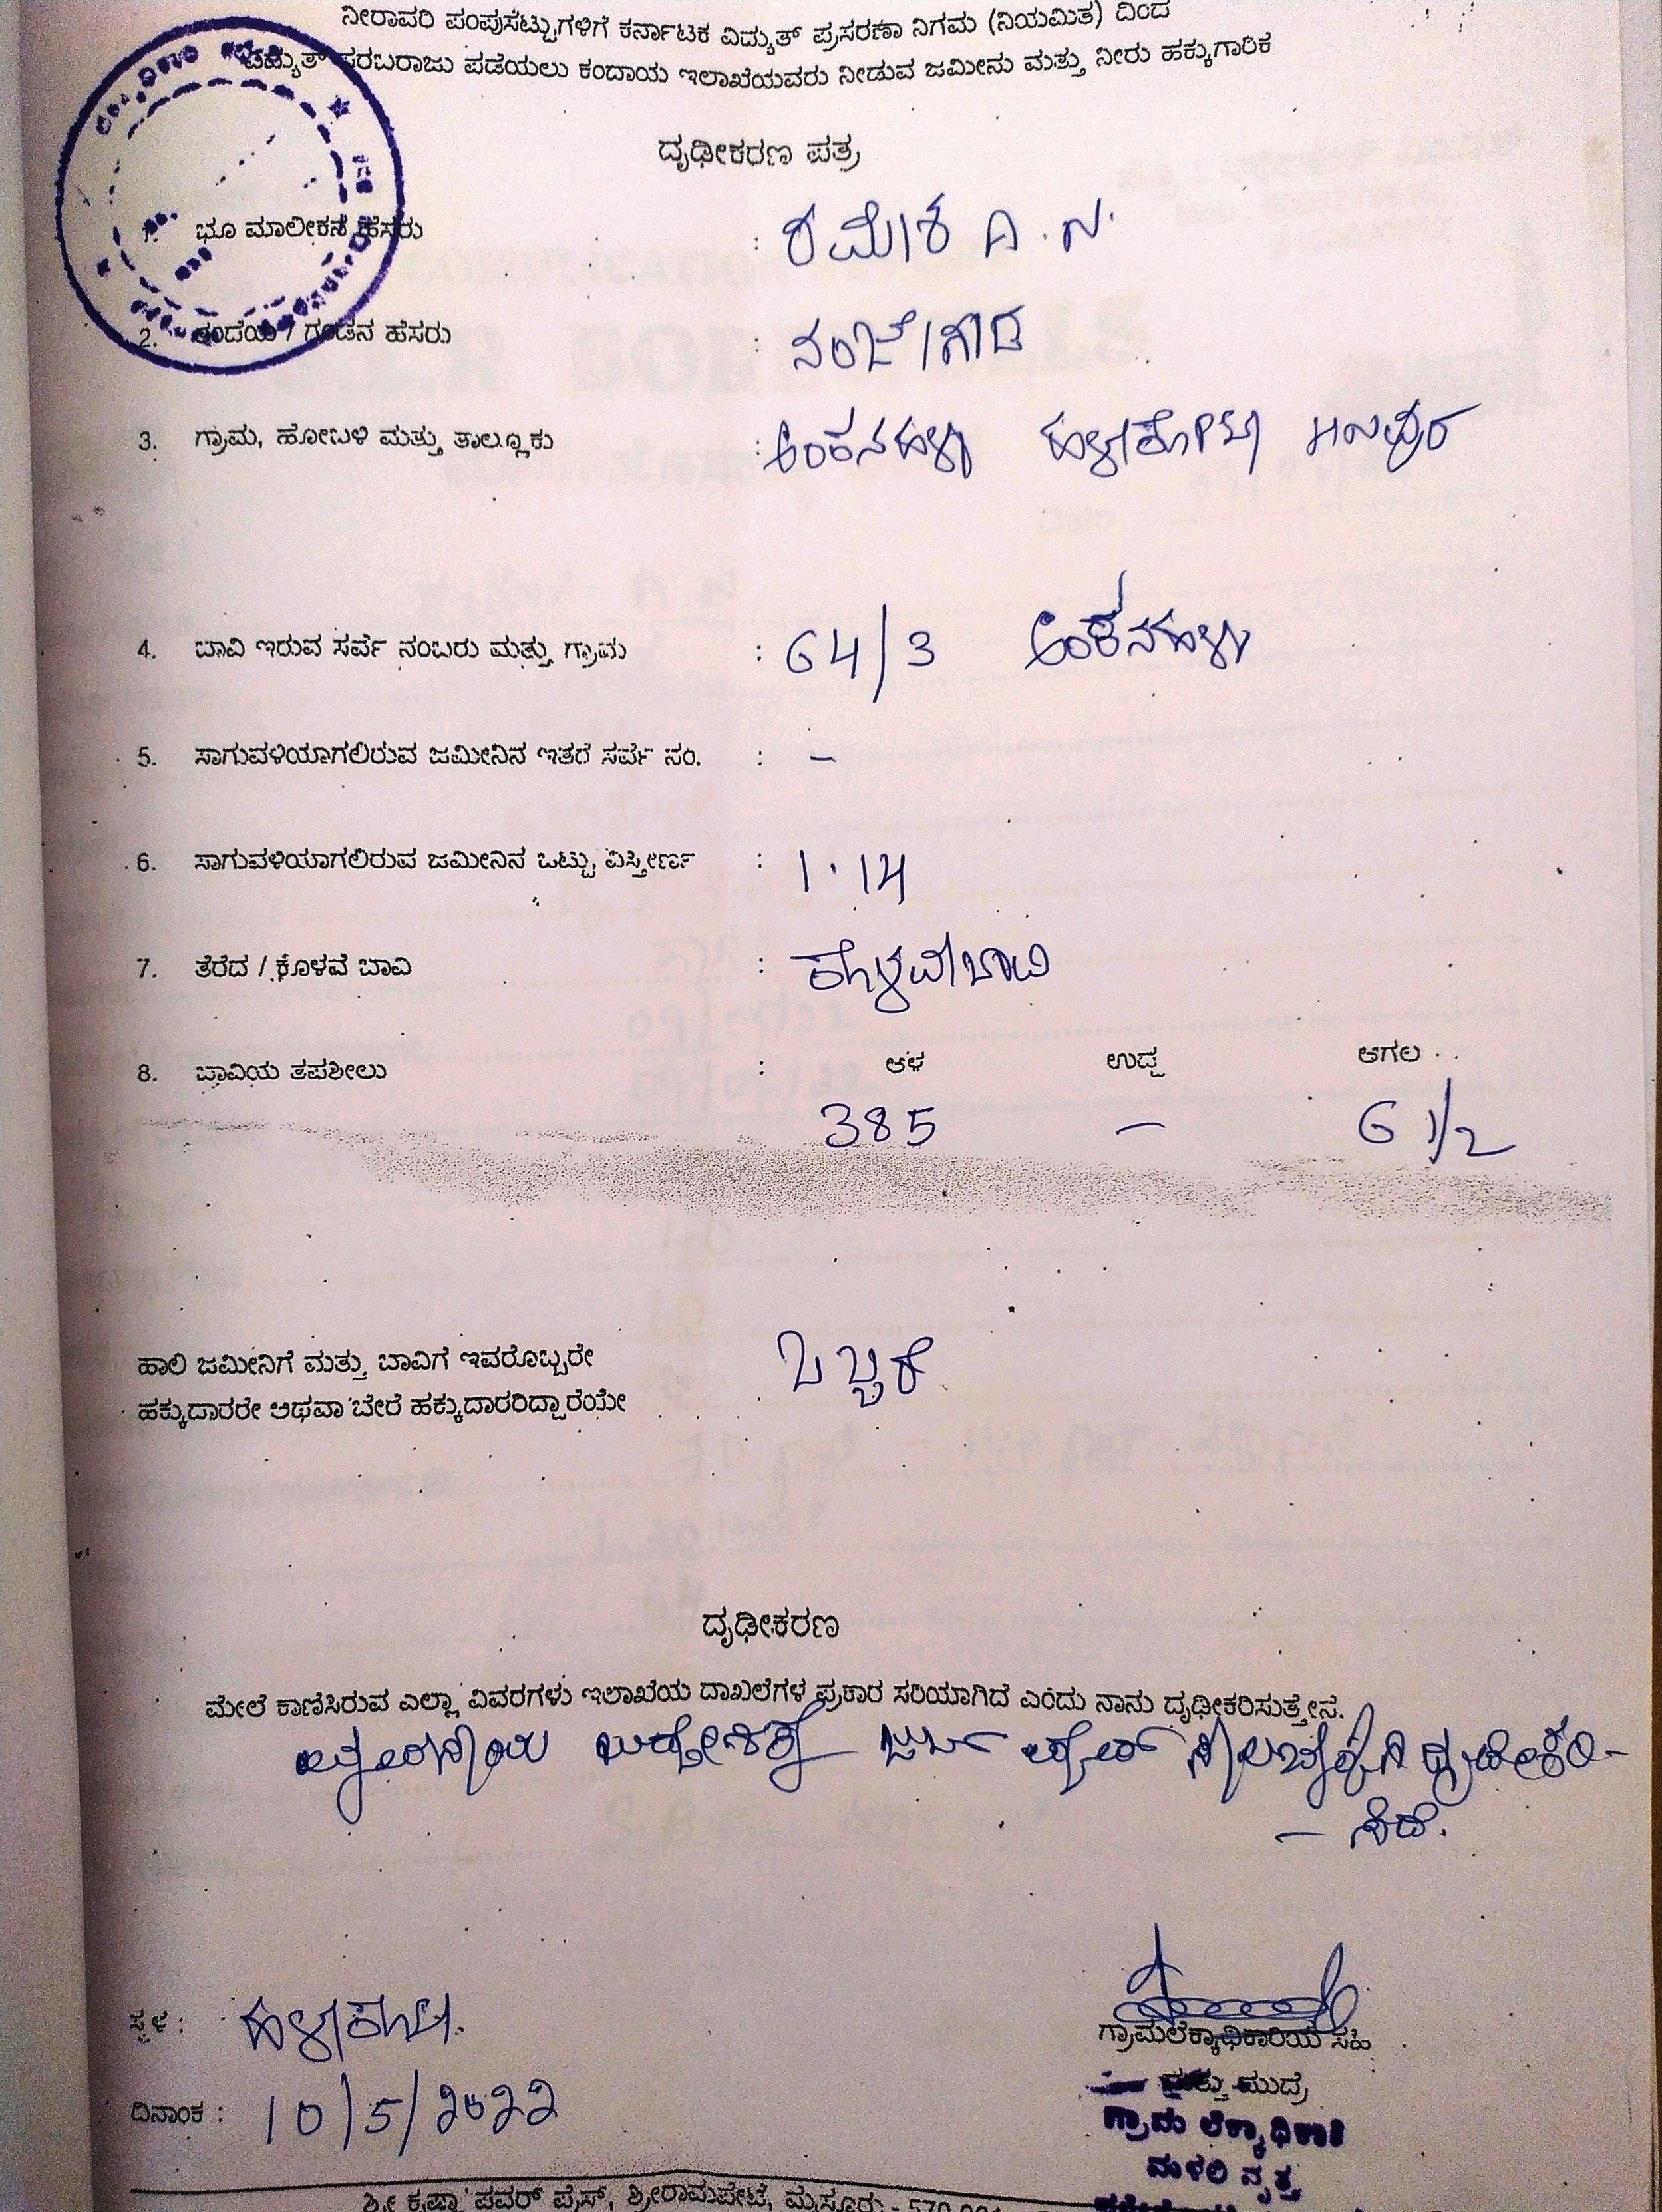 ನೀರಾವರಿ ಪಂಪುಸೆಟ್ಟುಗಳಿಗೆ ಕರ್ನಾಟಕ ವಿದ್ಯುತ್ ಪ್ರಸರಣಾ ನಿಗಮ (ನಿಯಮಿತ) ದಿಂದ
ವಿದ್ಯುತ್ ಸರಬರಾಜು ಪಡೆಯಲು ಕಂದಾಯ ಇಲಾಖೆಯವರು ನೀಡುವ ಜಮೀನು ಮತ್ತು ನೀರು ಹಕ್ಕುಗಾರಿಕ
ದೃಢೀಕರಣ ಪತ್ರ
1. ಭೂ ಮಾಲೀಕನ ಹೆಸರು : ರಮೇಶ ಎ . ಎನ್.
2. ತಂದೆಯ / ಗಂಡನ ಹೆಸರು : ನಂಜೇಗೌಡ
3. ಗ್ರಾಮ, ಹೋಬಳಿ ಮತ್ತು ತಾಲ್ಲೂಕು : ಅಂಕನಹಳ್ಳಿ ಹಳ್ಳಿಕೋಟೆ
4. ಬಾವಿ ಇರುವ ಸರ್ವೆ ನಂಬರು ಮತ್ತು ಗ್ರಾಮ : 64/3 ಅಂಕನಹಳ್ಳಿ
5. ಸಾಗುವಳಿಯಾಗಲಿರುವ ಜಮೀನಿನ ಇತರೆ ಸರ್ವೆ ನಂ. : –
6. ಸಾಗುವಳಿಯಾಗಲಿರುವ ಜಮೀನಿನ ಒಟ್ಟು ವಿಸ್ತೀರ್ಣ : 1.14
7. ತೆರೆದ / ಕೊಳವೆ ಬಾವಿ : ಕೊಳವೆಬಾವಿ
8. ಬಾವಿಯ ತಪಶೀಲು : ಆಳ ಉದ್ದ ಅಗಲ
385 – 6 1/2
ಹಾಲಿ ಜಮೀನಿಗೆ ಮತ್ತು ಬಾವಿಗೆ ಇವರೊಬ್ಬರೇ
ಹಕ್ಕುದಾರರೇ ಅಥವಾ ಬೇರೆ ಹಕ್ಕುದಾರರಿದ್ದಾರೆಯೇ ಒಬ್ಬರೆ
ದೃಢೀಕರಣ
ಮೇಲೆ ಕಾಣಿಸಿರುವ ಎಲ್ಲಾ ವಿವರಗಳು ಇಲಾಖೆಯ ದಾಖಲೆಗಳ ಪ್ರಕಾರ ಸರಿಯಾಗಿದೆ ಎಂದು ನಾನು ದೃಢೀಕರಿಸುತ್ತೇನೆ.
– ಸಿದೆ.
ಸ್ಥಳ :
ದಿನಾಂಕ : 10/5/2022
ಗ್ರಾಮಲೆಕ್ಕಾಧಿಕಾರಿಯ ಸಹಿ
ಮತ್ತು ಮುದ್ರೆ
ಗ್ರಾಮ ಲೆಕ್ಕಾಧಿಕಾರಿ
ಮಳಲಿ ವೃತ್ತ
ಶ್ರೀ ಕೃಷ್ಣಾ ಪವರ್ ಪ್ರೆಸ್, ಶ್ರೀರಾಮಪೇಟೆ, ಮೈಸೂರು - 570 001